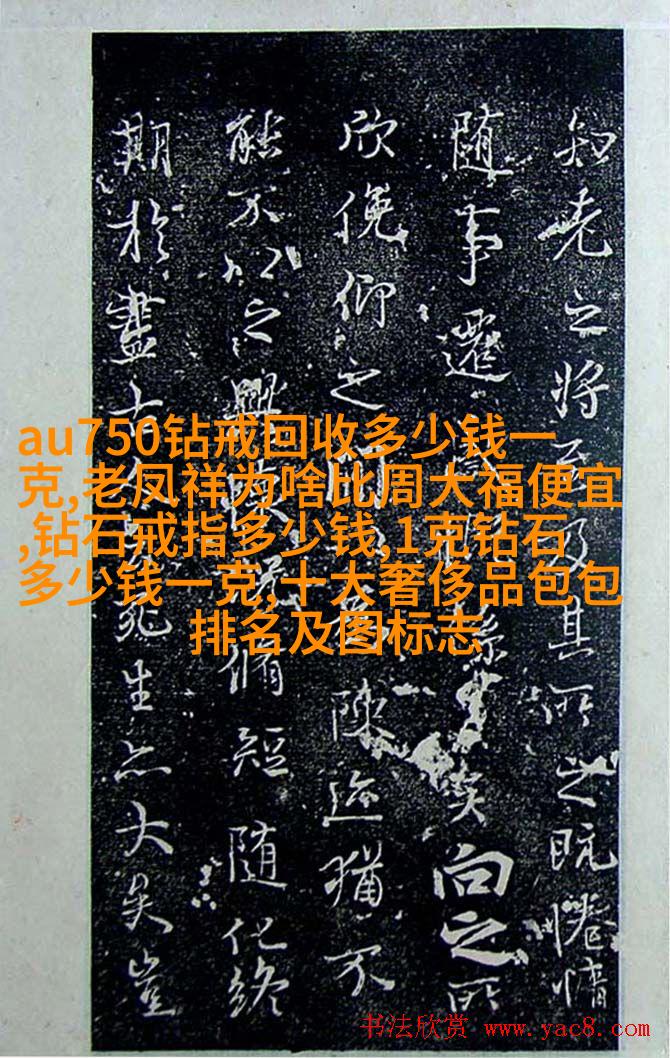 知老之將至及其所之既惓情
随事遷感慨係矣向之所
欣俛仰之間為陳迹猶不
能不以之興懷脩短随化終
期於盡古死生亦大矣豈
au750钻戒回收多少钱一
克,老凤祥为啥比周大福便宜
,钻石戒指多少钱,1克钻石
多少钱一克,十大奢侈品包包
排名及图标志
书法欣赏 www.yac8.com